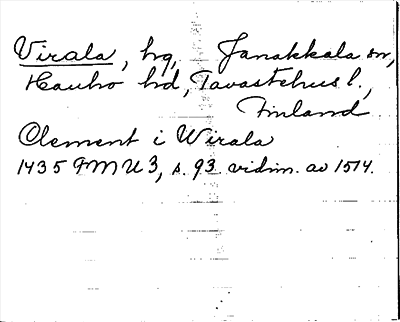 Virala, hg, Janakkala sn,
Hauho hd, Tavastehus l.,
Finland
Clement i Wirala
1435 FMU 3, s. 93 vidim. av 1514.